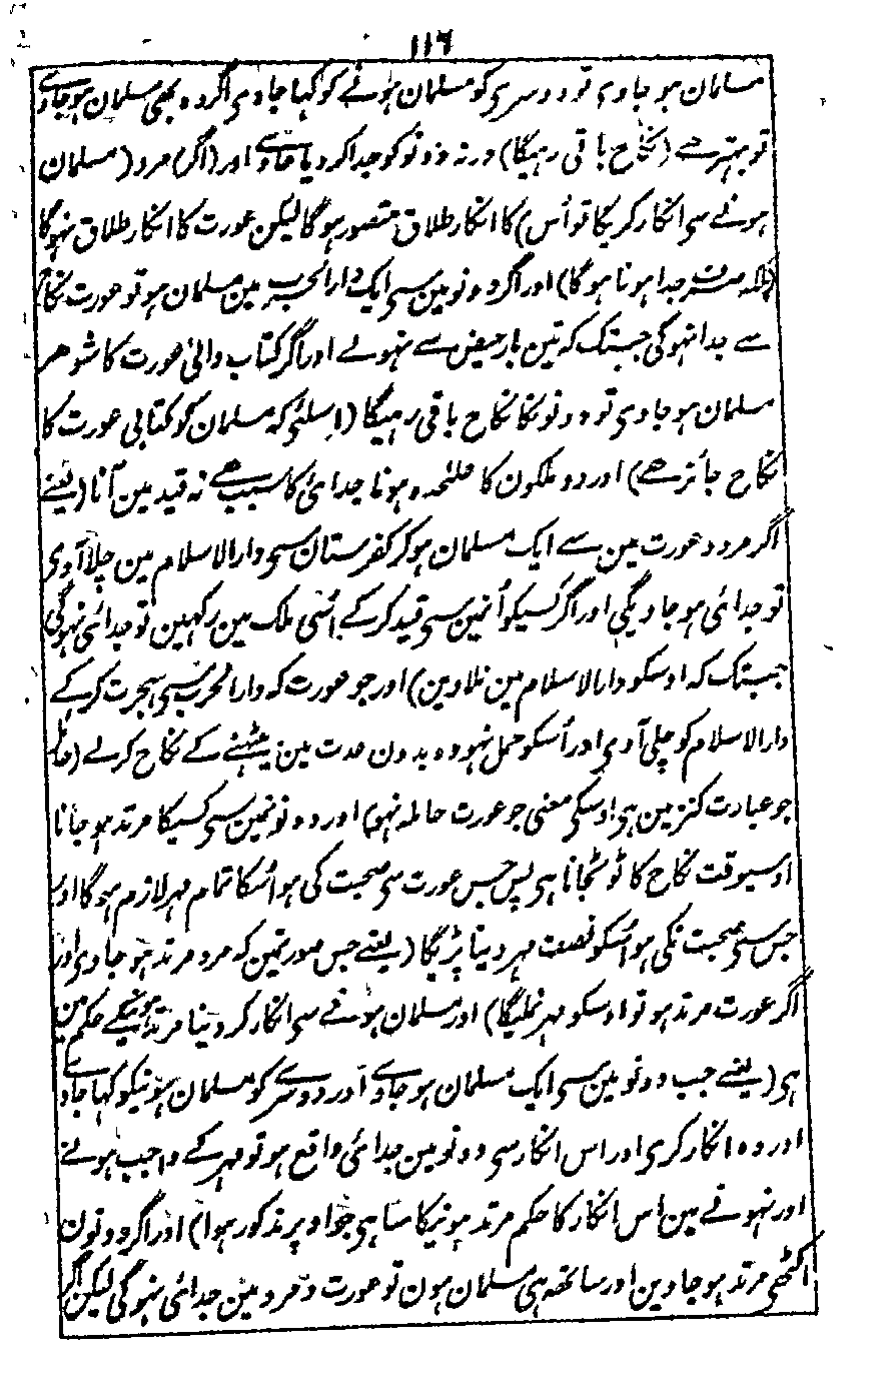 ۱۱۶
مسلمان ہو جاوی تو دوسری کو مسلمان ہونے کو کہا جاوی اگر وہ بھی مسلمان ہو جاوے
تو بہتر ھے (نکاح باقی رہیگا) ورنہ دونو کو جدا کر دیا جاوے اور (اگر) مرد (مسلمان
ہونے سی انکار کریگا تو اُس) کا انکار طلاق متصور ہوگا لیکن عورت کا انکار طلاق نہوگا
(بلکہ صرف جدا ہونا ہوگا) اور اگر دونو مین سی ایک دار الحرب مین مسلمان ہو تو عورت نکاح
سے جدا نہوگی جبتک کہ تین بار حیض سے نہولے اور اگر کتاب والی عورت کا شوھر
مسلمان ہو جاوی تو دونو نکا نکاح باقی رہیگا (اسلئی کہ مسلمان کو کتابی عورت کا
نکاح جائز ھے) اور دو ملکون کا علٰحدہ ہونا جدائی کا سبب ھے نہ قید مین آنا (یعنے
اگر مرد و عورت مین سے ایک مسلمان ہو کر کفرستان سی دارالاسلام مین چلا آوی
تو جدائی ہو جاویگی اور اگر کسیکو اُنمین سی قید کر کے اُسی ملک مین رکہین تو جدائی نہوگی
جبتک کہ اوسکو دارالاسلام مین نلاوین) اور جو عورت کہ دارالحرب سی ہجرت کر کے
دارالاسلام کو چلی آوی اور اُسکو حمل نہو وہ بدون عدت مین بیٹہنے کے نکاح کر لے (حائل
جو عبارت کنز مین ہی اوسکی معنی جو عورت حاملہ نہو) اور دونو نمین سی کسیکا مرتد ہو جانا
اوسیوقت نکاح کا ٹوٹجانا ہی پس جس عورت سی صحبت کی ہو اُسکا تمام مہر لازم ہوگا اور
جس سی صحبت نکی ہو اُسکو نصف مہر دینا پڑیگا (یعنے جس صورتمین کہ مرد مرتد ہو جاوی اور
اگر عورت مرتد ہو تو اوسکو مہر نملیگا) اور مسلمان ہونے سی انکار کر دینا مرتد ہونیکے حکم مین
ہی (یعنے جب دونو مین سی ایک مسلمان ہو جاوے اور دوسرے کو مسلمان ہونیکو کہا جاوے
اور وہ انکار کری اور اس انکار سی دونو مین جدائی واقع ہو تو مہر کے واجب ہونے
اور نہونے مین اس انکار کا حکم مرتد ہونیکا سا ہی جو اوپر مذکور ہوا) اور اگر دونون
اکٹھی مرتد ہو جاوین اور ساتھہ ہی مسلمان ہون تو عورت و مرد مین جدائی نہوگی لیکن اگر